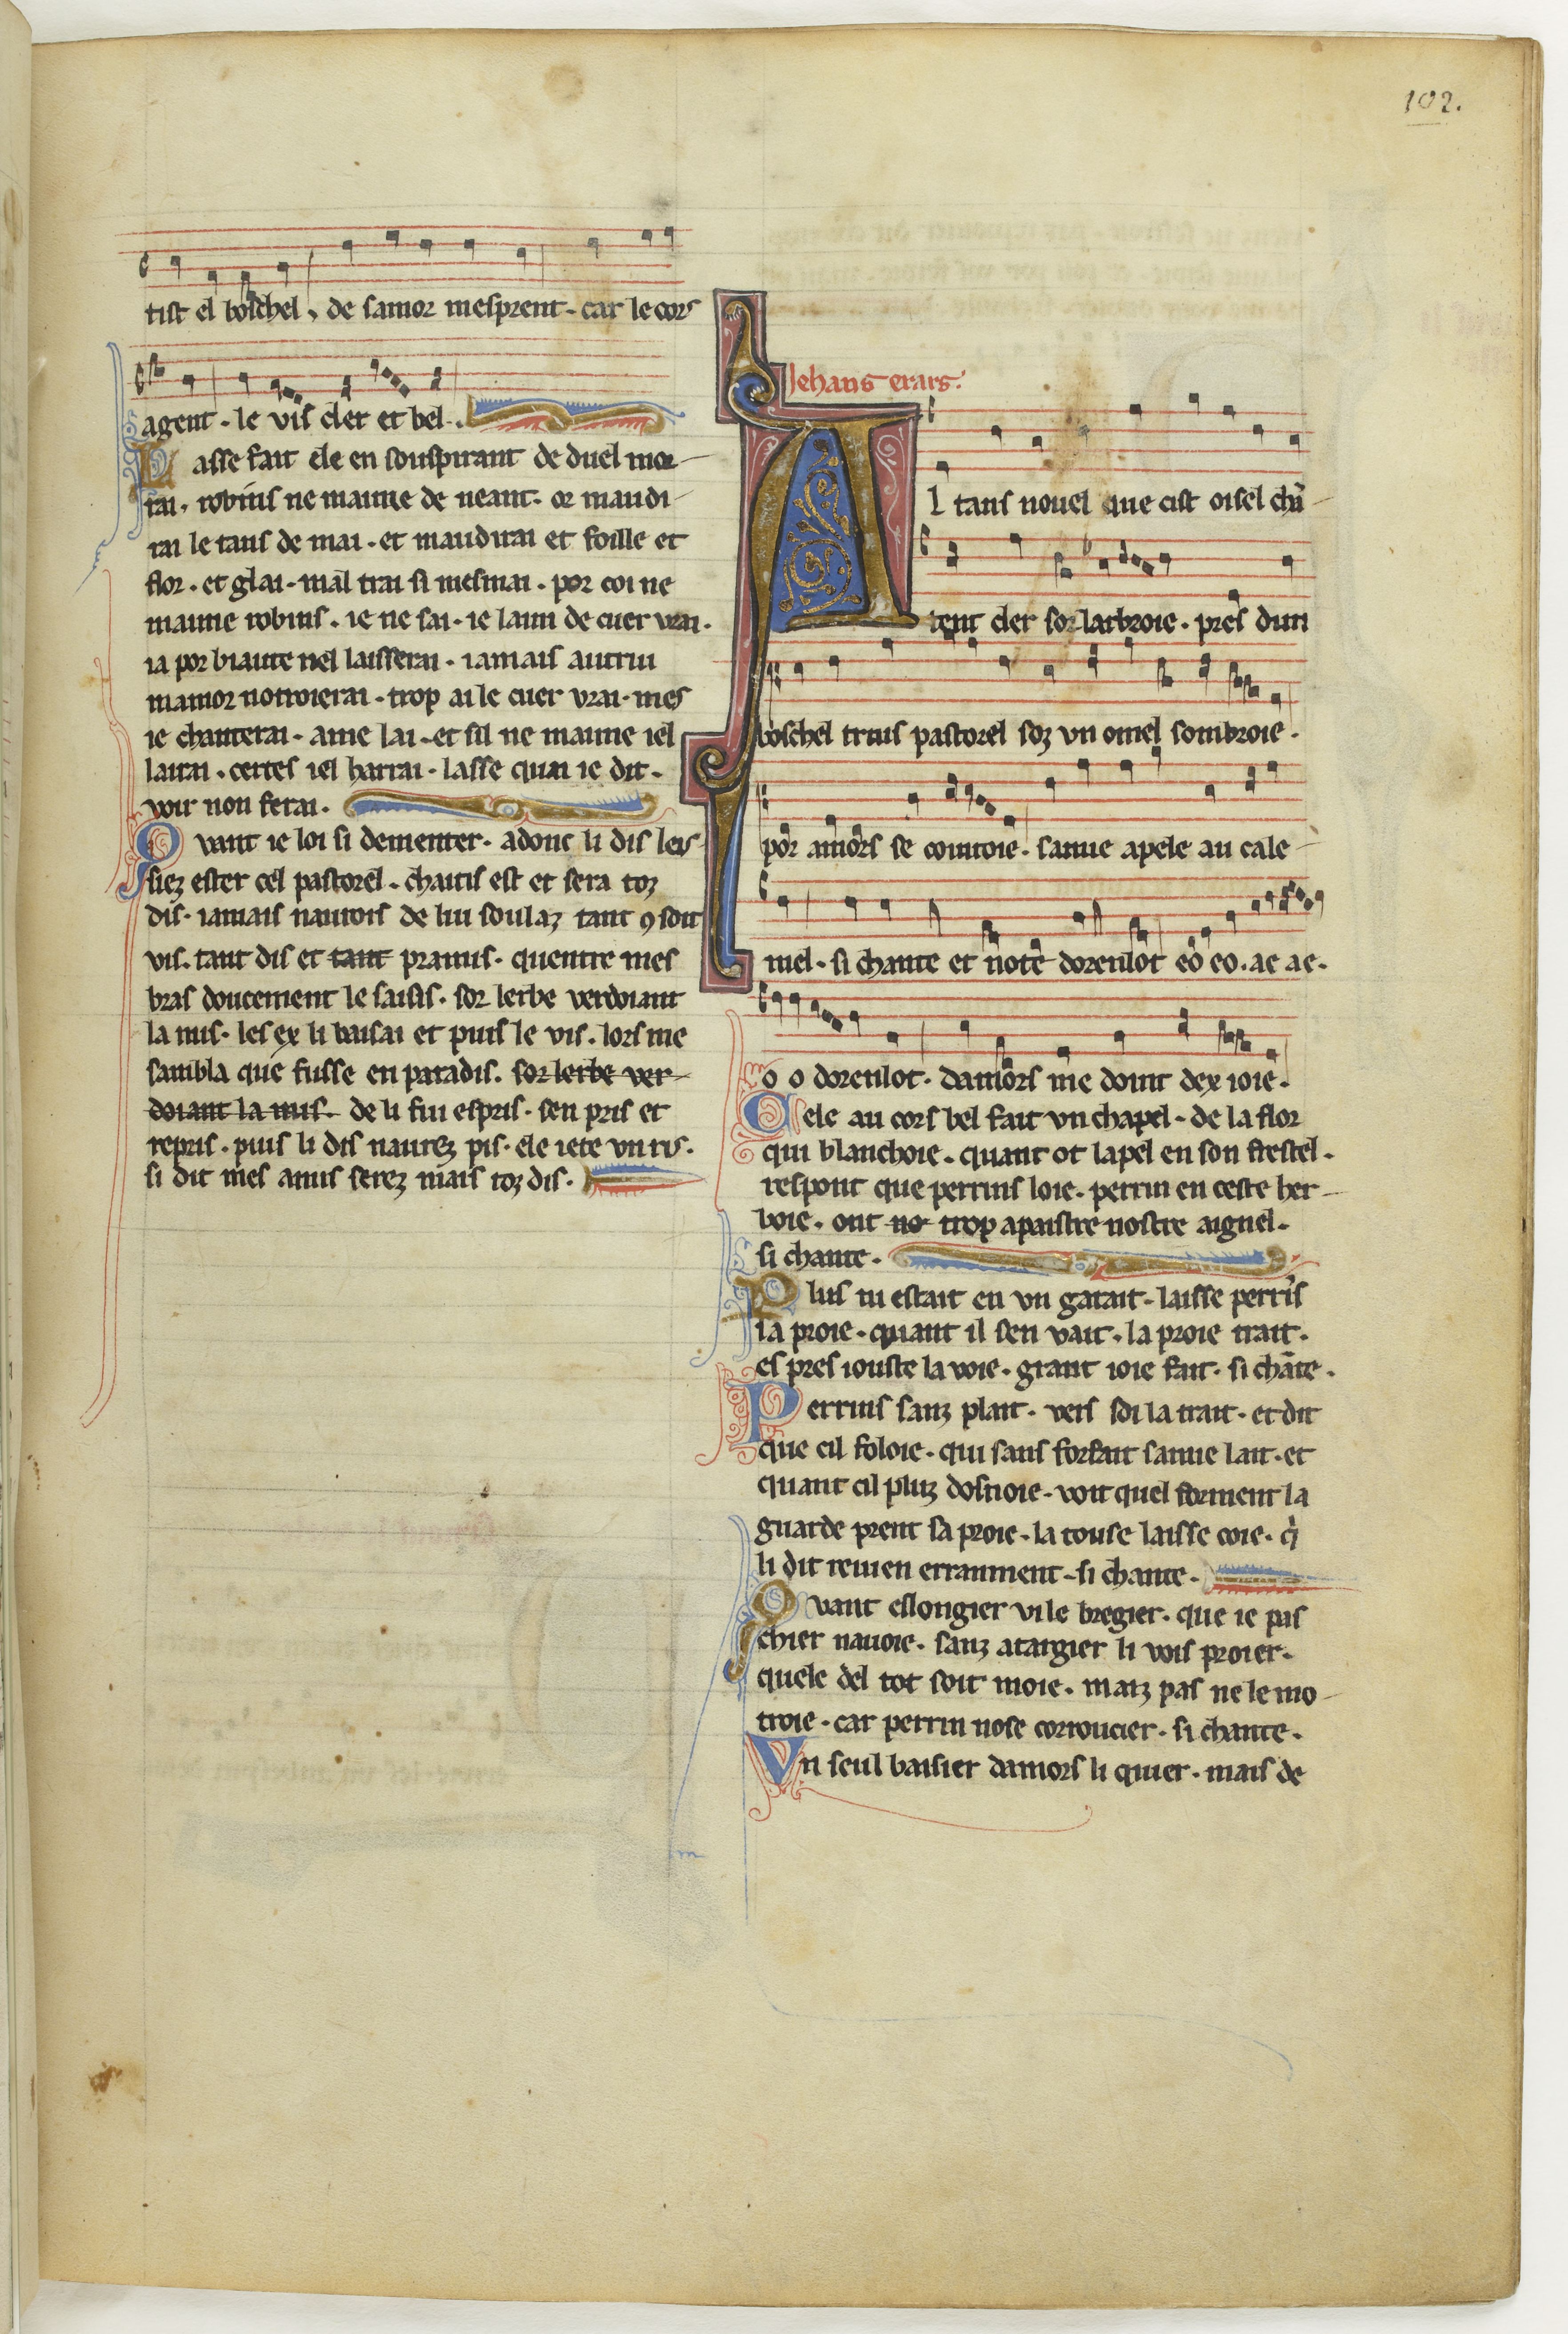 102.
tist el boschel, de samor mesprent. car le cors
agent. le vis cler et bel.
Lasse fait ele en souspirant de duel mor
rai. robins ne maime de neant. or maudi
rai le tans de mai. et maudirai et foille et
flor. et glai. mal trai si mesmai. por coi ne
maime robins. ie ne sai. ie laim de cuer vrai.
ia por biaute nel laisserai. iamais autrui
mamor notroierai. trop ai le cuer vrai. mes
ie chanterai. ame lai. et sil ne maime iel
lairai. certes iel harrai. lasse quai ie dit.
voir non ferai.
Quant ie loi si dementer. adonc li dis leis
siez ester cel pastorel. chaitis est et sera toz
dis. iamais nautois de lui soulaz tant 9 soit
vis. tant dis et tant pramis. quentre mes
bras doucement le saisis. sor lerbe verdoiant
la mis. les ex li baisai et puis le vis. lors me
sambla que fusse en paradis. sor lerbe ver
doiant la mis. de li fui espris. sen pris et
repris. puis li dis naurez pis. ele iete vn ris.
si dit mes amis serez mais toz dis.
Jehans erars.
Al tans nouel que cist oisel chā
tent cler sor larbroie. pres dun
boschel truis pastorel soz vn omel sombroie.
por amors se cointoie. samie apele au cale
mel. si chante et note dorenlot eo eo. ae ae.
o o dorenlot. damors me doint dex ioie.
Cele au cors bel fait vn chapel. de la flor
qui blanchoie. quant ot lapel en son frestel.
respont que perrins loie. perrin en ceste her
boie. ont no trop apaistre nostre aignel.
si chante.
Plus ni estait en vn garait. laisse perrīs
la proie. quant il sen vait. la proie trait.
es pres iouste la voie. grant ioie fait. si chāte.
Perrins sanz plait. vers soi la trait. et dit
que cil foloie. qui sans forfait samie lait. et
quant cil pluz dosnoie. voit quel forment la
guarde prent sa proie. la touse laisse coie. q̇
li dit reuien erranment. si chante.
Quant eslongier vi le bregier. que ie pas
chier nauoie. sanz atargier li vois proier.
quele del tot soit moie. maiz pas ne le mo
troie. car perrin nose corroucier. si chante.
Vn seul baisier damors li quier. mais de